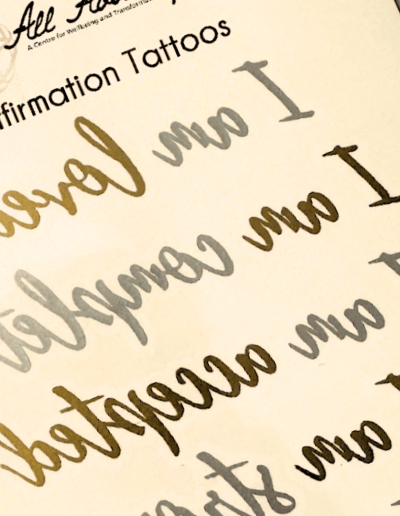 All
A Centre for Wellbeing and Transformation
ffirmation Tattoos
I am love
I am complet
I am accepted
I am str